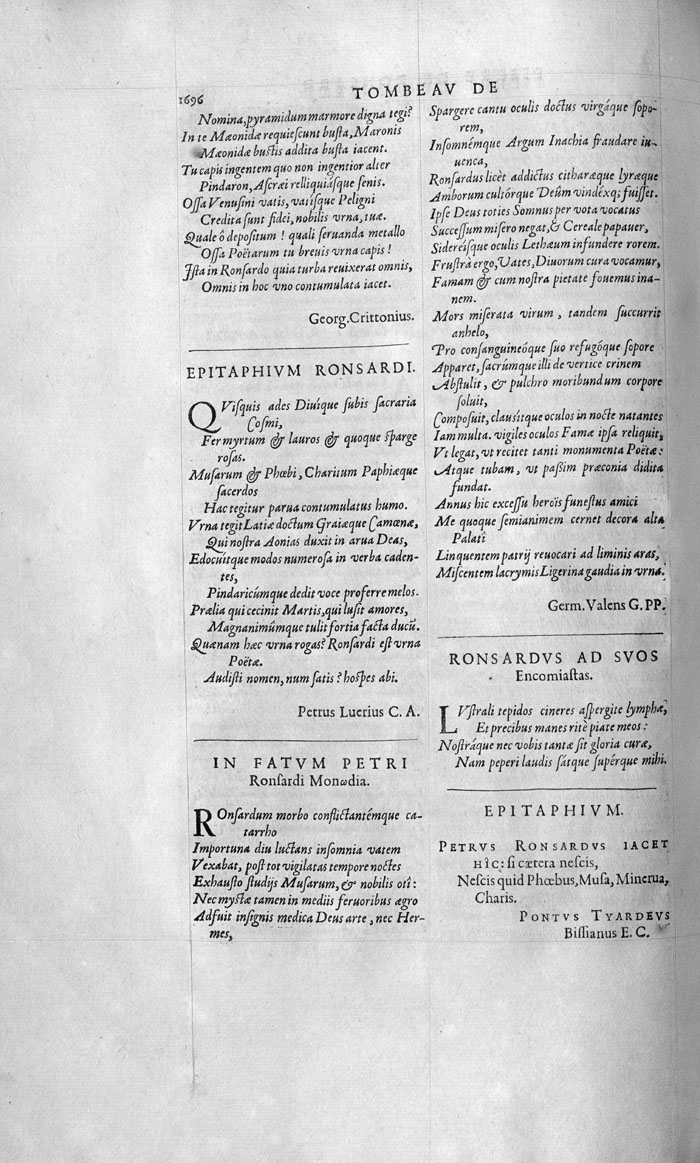 1696
TOMBEAV DE
Nomina, pyramidum marmore digna tegi?
In te Mæonidæ requieſcunt buſta, Maronis
Mæonidæ buſtis addita buſta iacent.
Tu capis ingentem quo non ingentior alter
Pindaron, Aſcræi relliquiáſque ſenis.
Oſſa Venuſini vatis, vatíſque Peligni
Credita ſunt fidei, nobilis vrna, tuæ.
Quale ô depoſitum ! quali ſeruanda metallo
Oſſa Poëtarum tu breuis vrna capis !
Iſta in Ronſardo quia turba reuixerat omnis,
Omnis in hoc vno contumulata iacet.
Georg. Crittonius.
EPITAPHIVM RONSARDI.
QViſquis ades Diuíque ſubis ſacraria
Coſmi,
Fer myrtum & lauros & quoque ſparge
roſas.
Muſarum & Phœbi, Charitum Paphiæque
ſacerdos
Hac tegitur parua contumulatus humo.
Vrna tegit Latiæ doctum Graiæque Camœnæ,
Qui noſtra Aonias duxit in arua Deas,
Edocuítque modos numeroſa in verba caden-
tes,
Pindaricúmque dedit voce proferre melos.
Prælia qui cecinit Martis, qui luſit amores,
Magnanimûmque tulit fortia facta ducũ.
Quænam hæc vrna rogas? Ronſardi eſt vrna
Poëtæ.
Audiſti nomen, num ſatis ? hoſpes abi.
Petrus Luerius C. A.
IN FATVM PETRI
Ronſardi Monωdia.
ROnſardum morbo conflictantémque ca-
tarrho
Importuna diu luctans inſomnia vatem
Vexabat, poſt tot vigilatas tempore noctes
Exhauſto ſtudijs Muſarum, & nobilis otî :
Nec myſtæ tamen in mediis feruoribus ægro
Adfuit inſignis medica Deus arte, nec Her-
mes,
Spargere cantu oculis doctus virgáque ſopo-
rem,
Inſomnémque Argum Inachia fraudare iu-
uenca,
Ronſardus licèt addictus citharæque lyræque
Amborum cultórque Deûm vindéxq; fuiſſet.
Ipſe Deus toties Somnus per vota vocatus
Succeſſum miſero negat, & Cereale papauer,
Sidereíſque oculis Lethæum infundere rorem.
Fruſtra ergo, Vates, Diuorum cura vocamur,
Famam & cum noſtra pietate fouemus ina-
nem.
Mors miſerata virum, tandem ſuccurrit
anhelo,
Pro conſanguineóque ſuo refugóque ſopore
Apparet, ſacrúmque illi de vertice crinem
Abſtulit, & pulchro moribundum corpore
ſoluit,
Compoſuit, clauſítque oculos in nocte natantes
Iam multa. vigiles oculos Famæ ipſa reliquit,
Vt legat, vt recitet tanti monumenta Poëtæ :
Atque tubam, vt paſſim præconia didita
fundat.
Annus hic exceſſu heroïs funeſtus amici
Me quoque ſemianimem cernet decora alta
Palatî
Linquentem patrij reuocari ad liminis aras,
Miſcentem lacrymis Ligerina gaudia in vrna.
Germ. Valens G. PP.
RONSARDVS AD SVOS
Encomiaſtas.
LVſtrali tepidos cineres aſpergite lymphæ,
Et precibus manes ritè piate meos :
Noſtráque nec vobis tantæ ſit gloria curæ,
Nam peperi laudis ſátque ſupérque mihi.
EPITAPHIVM.
PETRVS RONSARDVS IACET
HÎC: ſi cætera neſcis,
Neſcis quid Phœbus, Muſa, Minerua,
Charis.
PONTVS TYARDEVS
Biſſianus E. C.